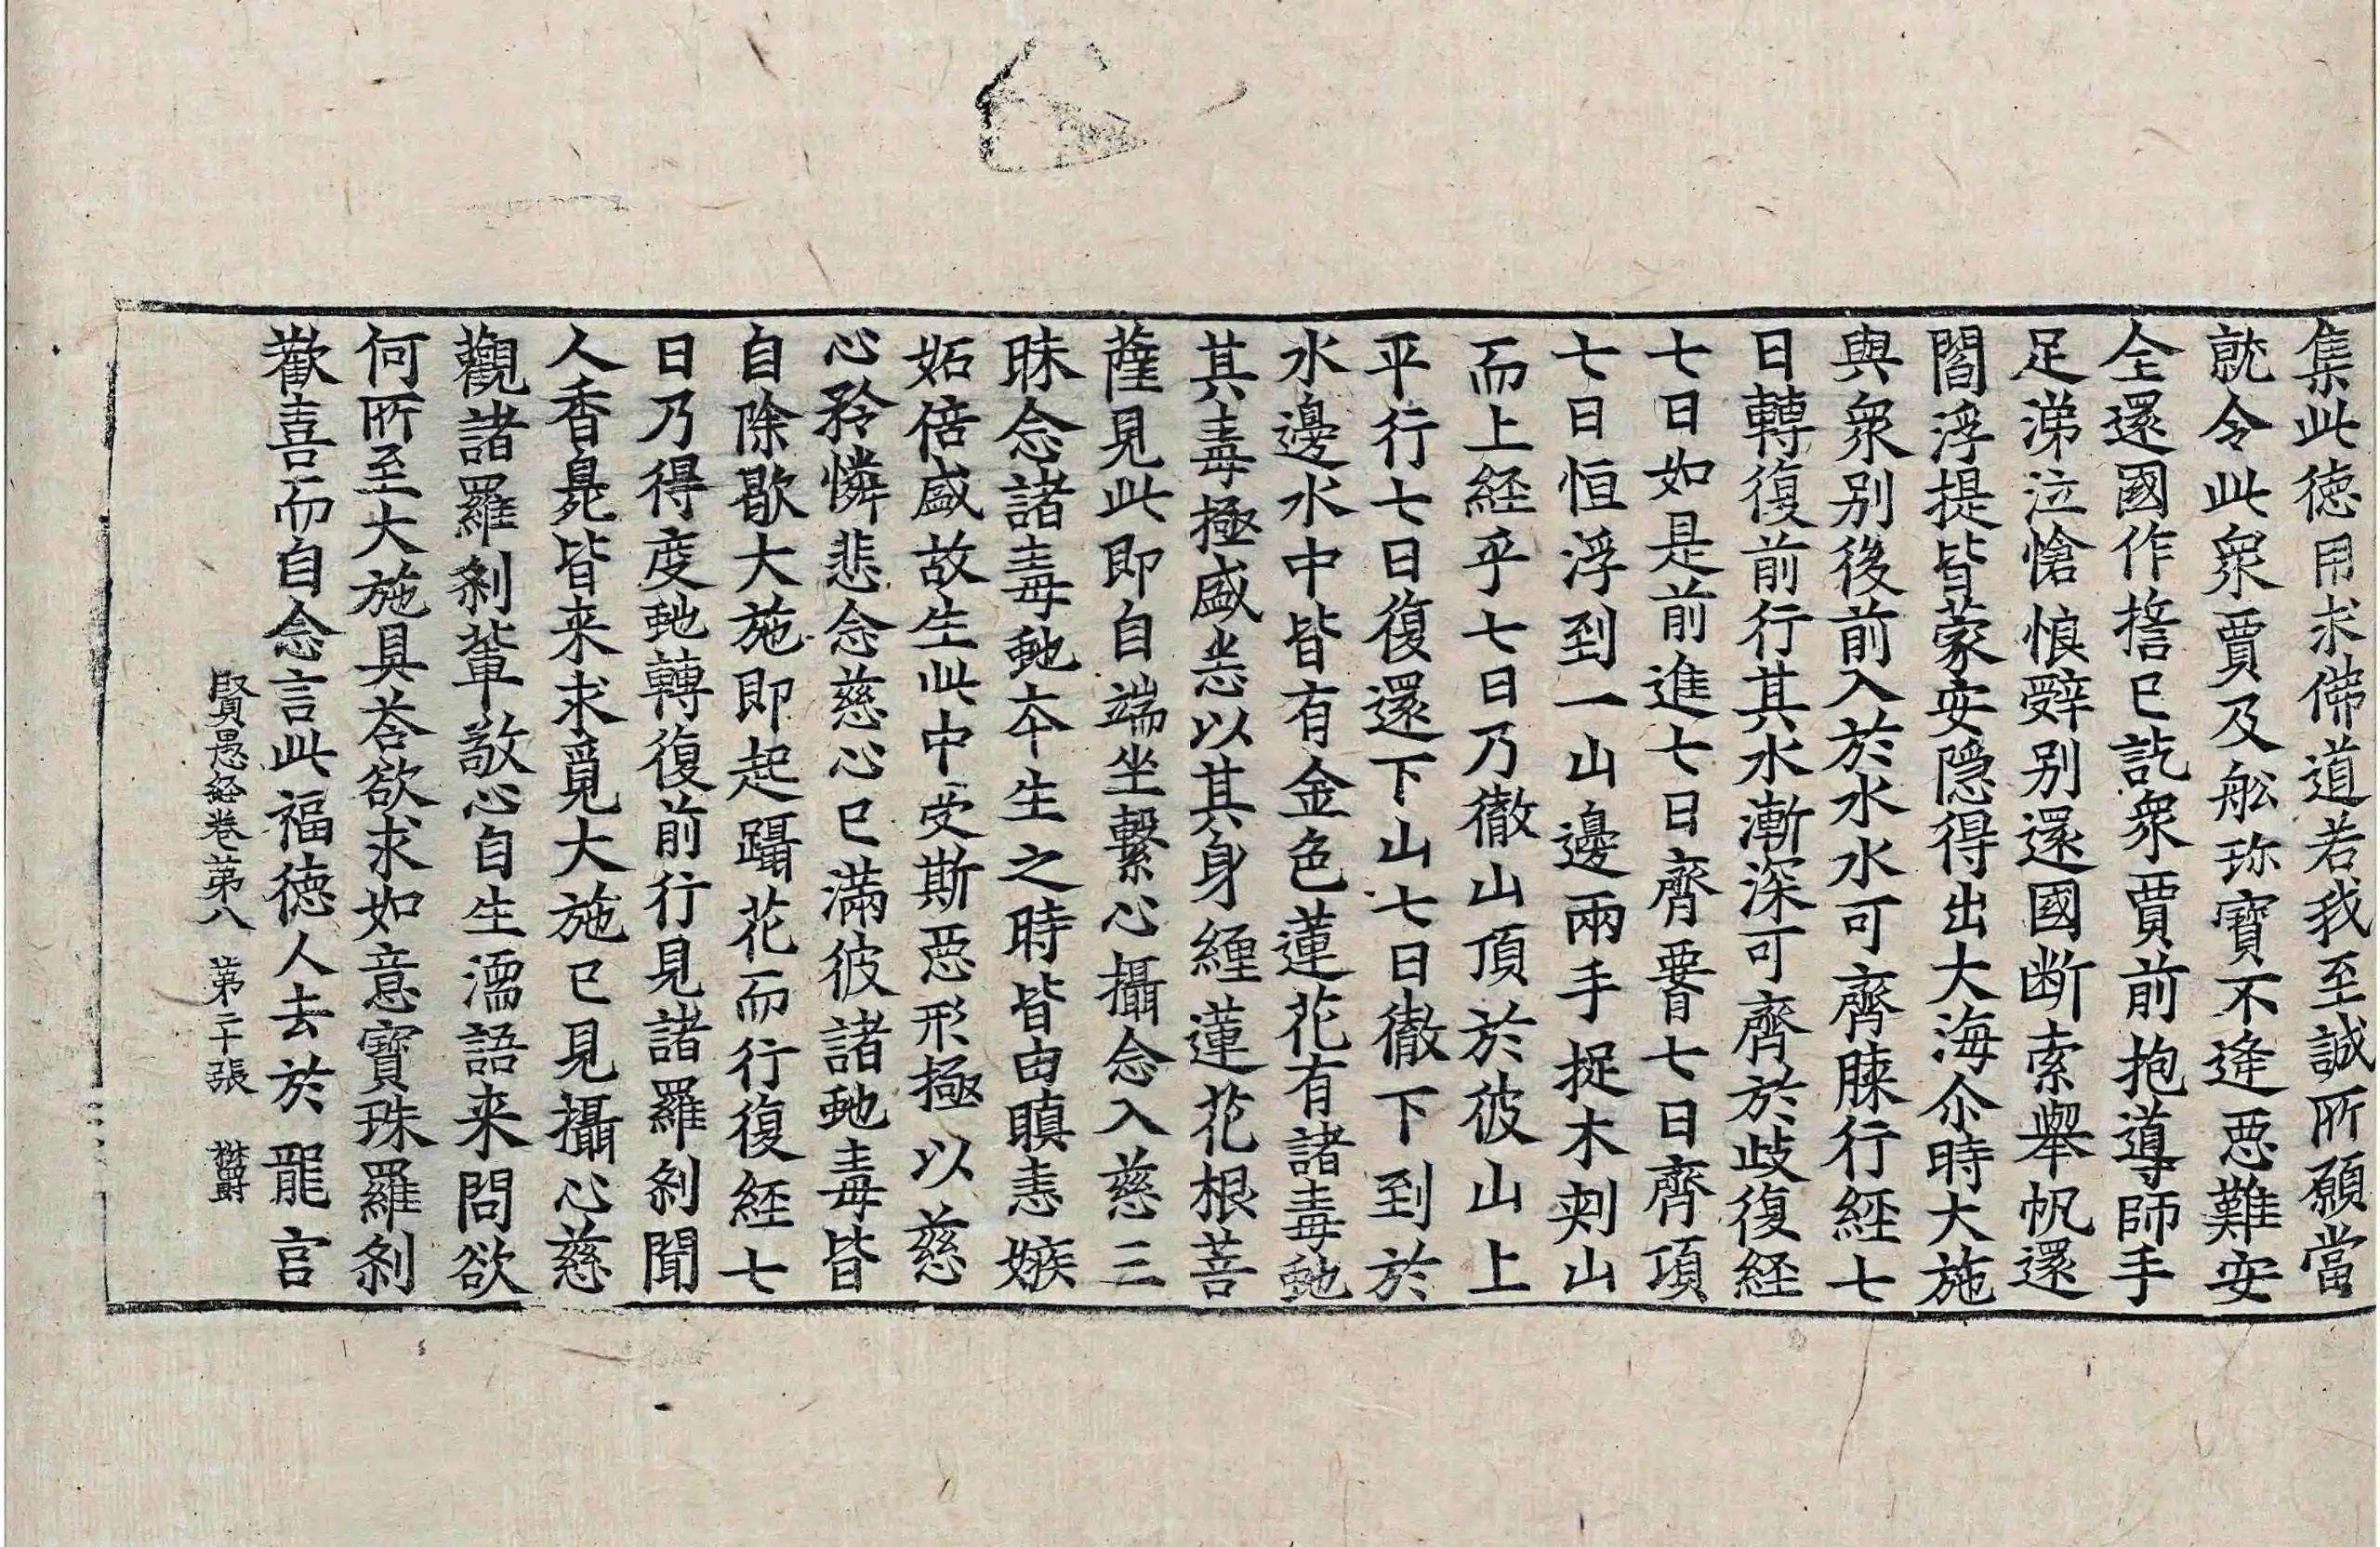 集此德用求佛道若我至誠所願當
就令此衆賈及舩珎寶不逢惡難安
全還國作擔已訖衆賈前抱導師手
足涕泣愴悢辤别還國断索舉帆還
閻浮提皆蒙安隱得出大海尒時大施
與衆别後前入於水水可齊𦟛行經七
日轉復前行其水漸深可齊於歧復經
七日如是前進七日齊要七日齊項
七日恒浮到一山邊兩手捉木刾山
而上経乎七日乃徹山頂於彼山上
平行七日復還下山七日徹下到於
水邊水中皆有金色蓮花有諸毒虵
其毒極盛恙以其身纏蓮花根菩
薩見此即自端坐繫心攝念入慈三
昧念諸毒虵夲生之時皆由瞋恚嫉
妬倍盛故生此中受斯惡形極以慈
心矜憐悲念慈心已滿彼諸虵毒皆
自除歇大施即起躡花而行復經七
日乃得度虵轉復前行見諸羅刹聞
人香臰皆来求覓大施已見攝心慈
觀諸羅刹軰敬心自生濡語来問欲
何所至大施具荅欲求如意寶珠羅刹
歡喜而自念言此福德人去於龍宫
賢愚経卷苐八　第二十張　樊爵